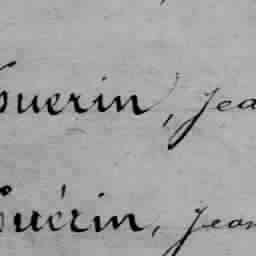 Guerin, Jea
Guérin, Jean